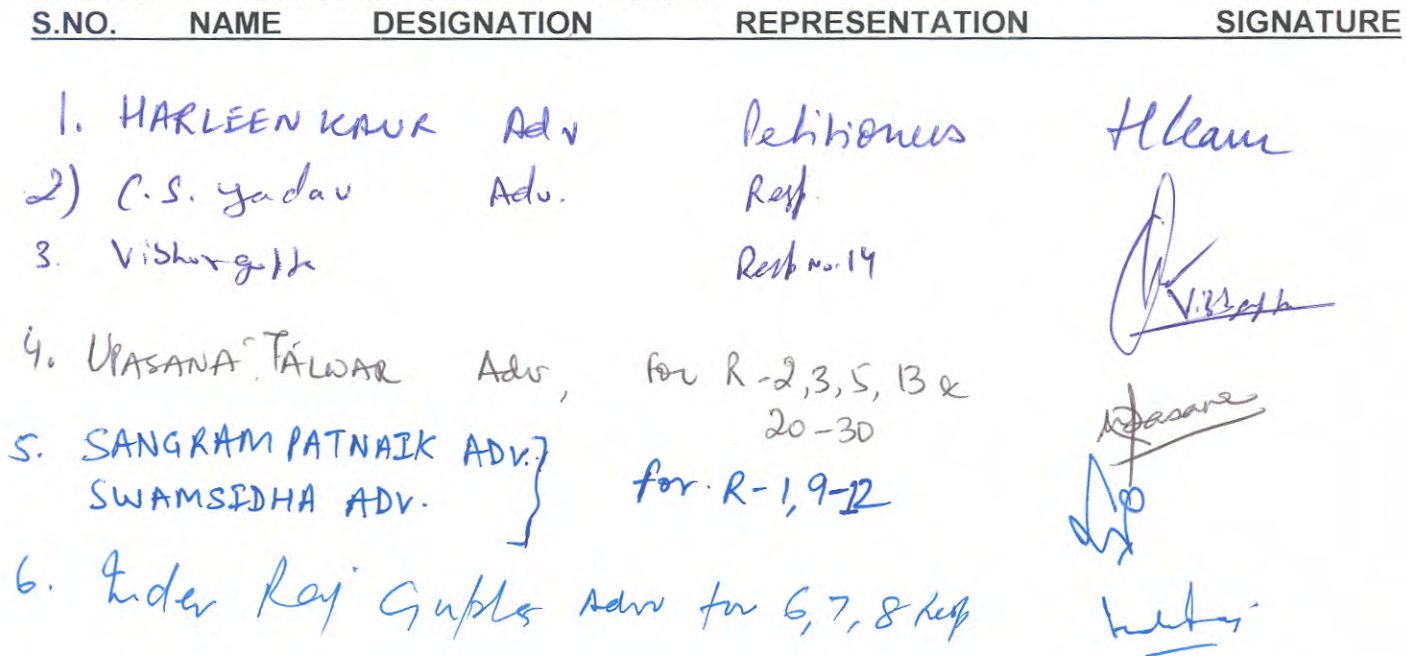 S.NO. NAME DESIGNATION REPRESENTATION SIGNATURE
1. HARLEEN KAUR Adv Petitioners HKaur
2) C.S. Yadav Adv. Resp.
3. Vishnu gupta Resp No. 14
4. UPASANA TALWAR Adv, For R-2,3,5, 13 &
20-30 Upasana
5. SANGRAM PATNAIK ADV. }
SWAMSIDHA ADV. for. R-1, 9-12
6. Inder Raj Gupta Adv for 6, 7, 8 Resp